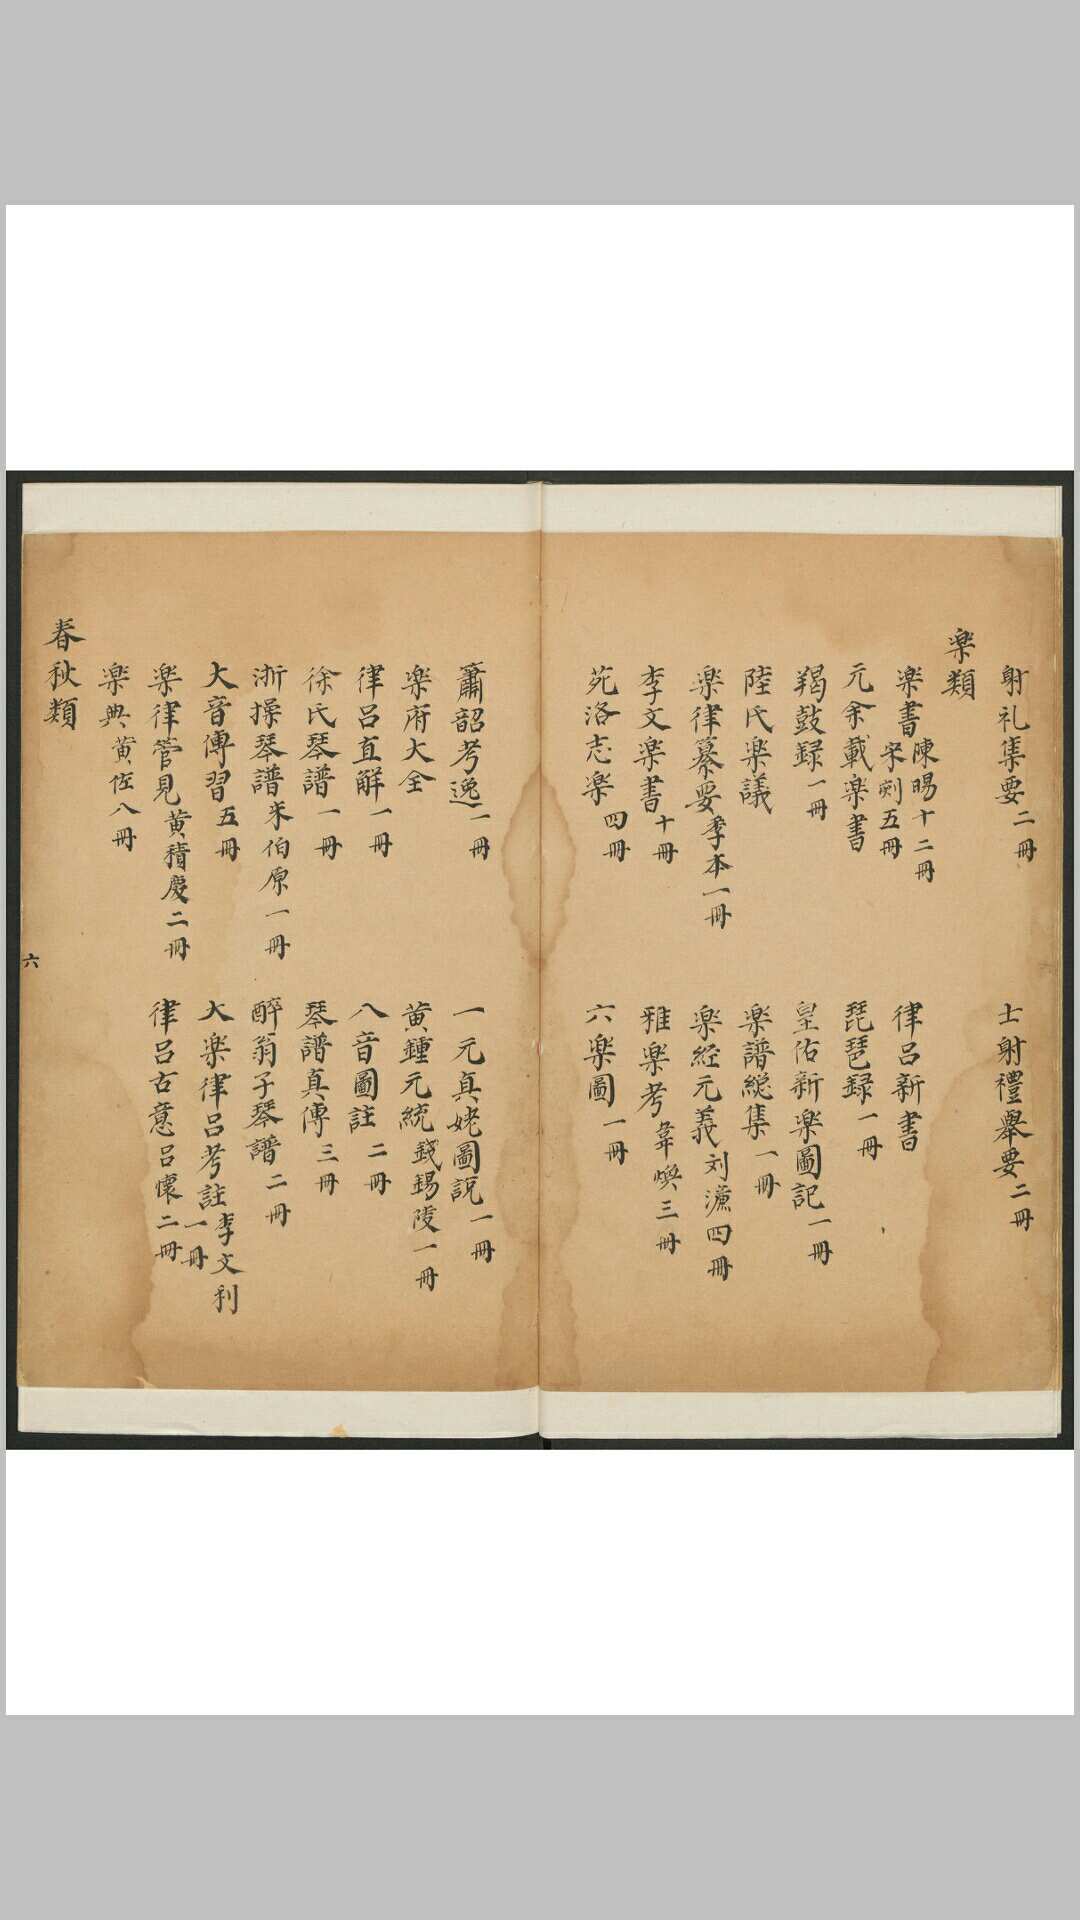 射礼集要二冊　士射禮舉要二冊
楽類
楽書陳暘十二冊宋刻五冊　律呂新書
元余載楽書　琵琶録一冊
羯鼓録一冊　皇佑新楽圖記一冊
陸氏楽議　楽譜総集一冊
楽律纂要季本一冊　楽經元義刘濂四冊
李文楽書十冊　雅楽考韋煥三冊
苑洛志楽四冊　六楽圖一冊
簫韶考逸一冊　一元真姥圖說一冊
楽府大全　黄鍾元統錢錫陵一冊
律呂直解一冊　八音圖註二冊
徐氏琴譜一冊　琴譜真傳三冊
浙操琴譜朱伯原一冊　醉翁子琴譜二冊
大音傳習五冊　大楽律呂考註李文利一冊
楽律管見黄積慶二冊　律呂古意呂懷二冊
楽典黄佐八冊
春秋類
六